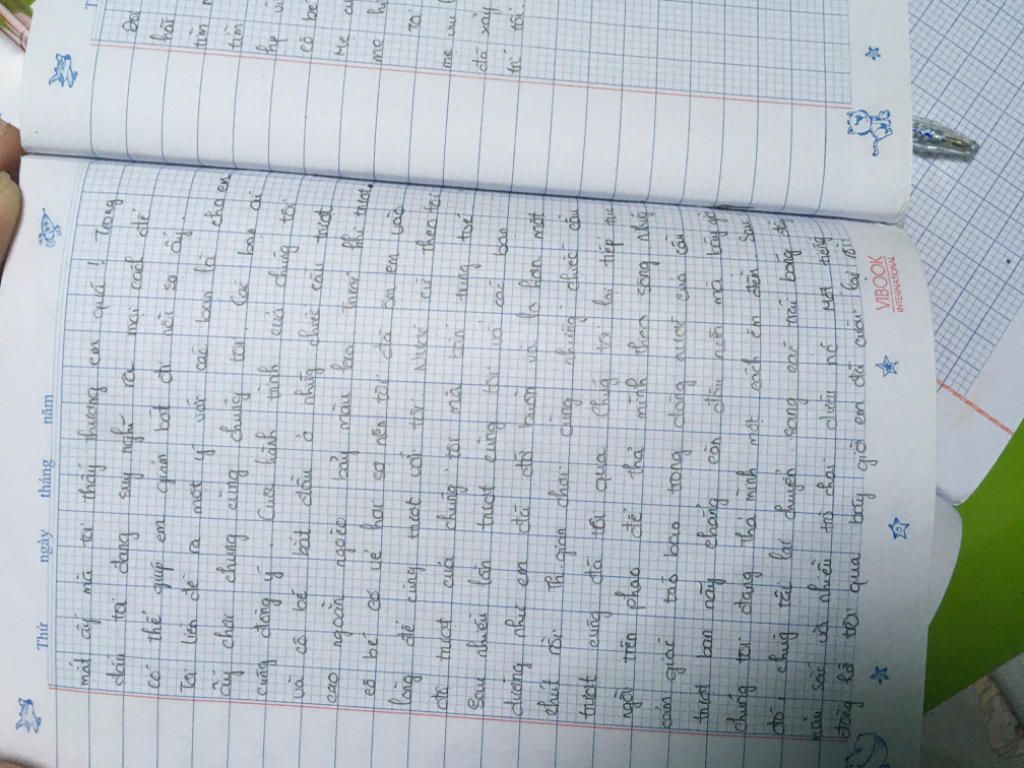 Thứ ngày tháng năm
mát ấy mà tôi thấy thương em quá ! Trong
đầu tôi đang suy nghĩ ra mọi cách để
có thể giúp em quên bớt đi nỗi sợ ấy.
Tôi liền đề ra một ý với các bạn là cho em
ấy chơi chung cùng chúng tôi. Các bạn ai
cũng đồng ý. Cuộc hành trình của chúng tôi
và cô bé bắt đầu ở những chiếc cầu trượt
cao ngoằn ngoèo bảy màu kia. Trước khi trượt,
cô bé có vẻ hơi sợ nên tôi đã đưa em vào
lòng để cùng trượt với tôi. Nước cứ theo tôi
đà trượt của chúng tôi mà bắn tung toé
Sau nhiều lần trượt cùng tôi và các bạn
dường như em đã đỡ buồn và lo hơn một
chút rồi. Th gian chơi cùng những chiếc cầu
trượt cũng đã trôi qua. Chúng tôi lại tiếp tục
ngồi trên phao để thả mình theo sóng nhẹ
cảm giác táo bạo trong dòng nước của cầu
trượt ban nãy chẳng còn đâu nữa mà bây giờ
chúng tôi đang thả mình một cách êm đềm. Sau
đó, chúng tôi lại chuyển sang các trái bóng đầy
màu sắc và nhiều trò chơi diệu kì. Một tiếng
đồng hồ trôi qua bây giờ em đã cười lại rồi
VIBOOK
INTERNATIONAL